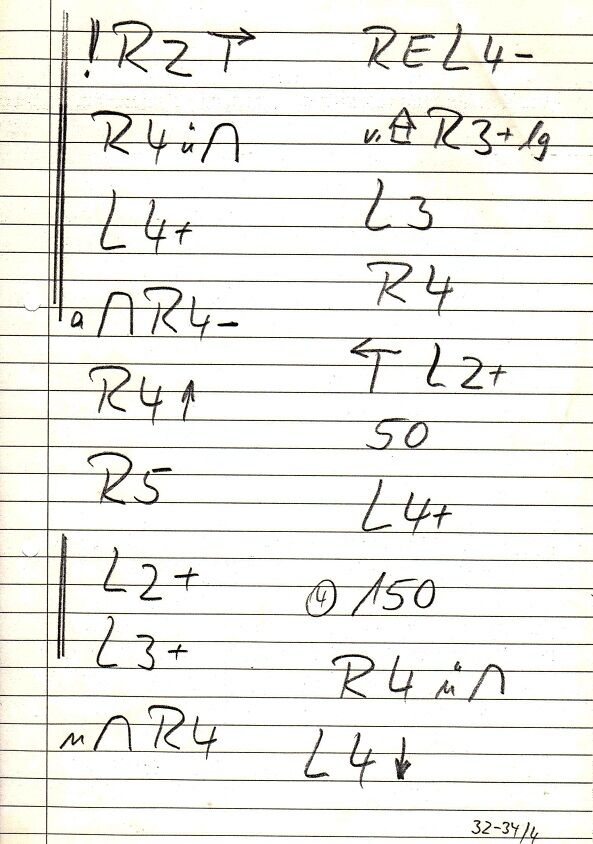 !R2 T→
R4 ü∩
L4+
a∩R4-
R4↑
R5
L2+
L3+
n∩R4
REL4-
v. R3+lg
L3
R4
←T L2+
50
L4+
④ 150
R4 ü∩
L4↓
32-34/4